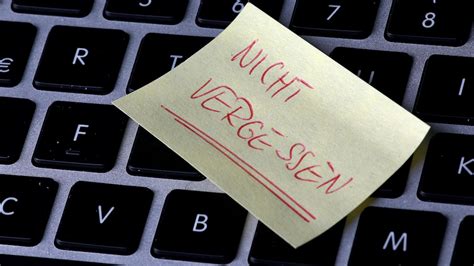 7 8
€ R T I
NICHT
VERGESSEN
F K
C V B M